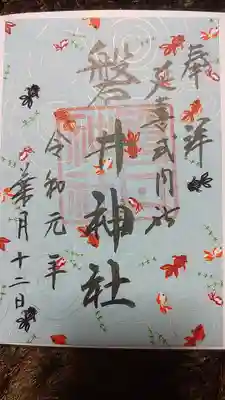 奉拝
延喜式内社
磐井神社
令和元年
葉月十二日